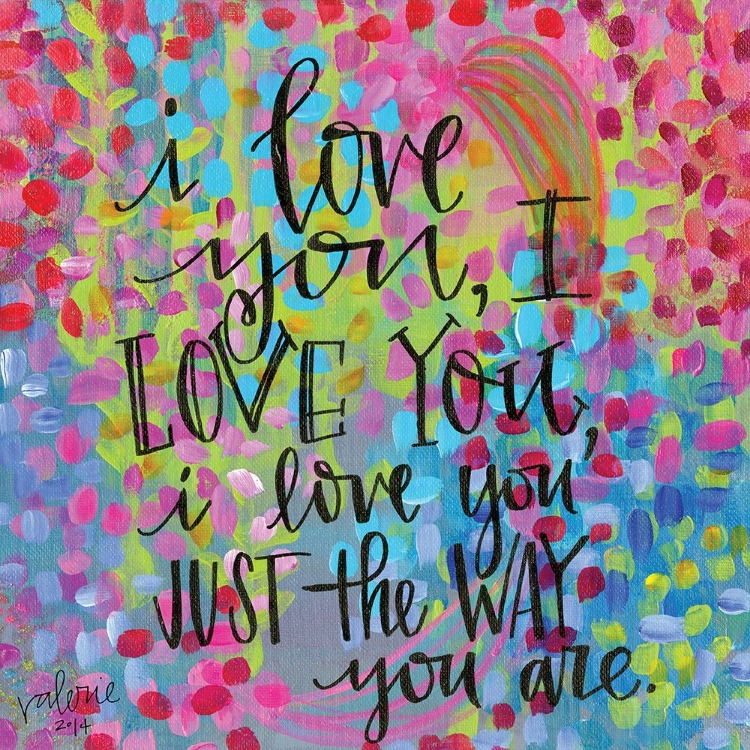 i love
you, I
LOVE You,
i love you
JUST the WAY
you are.
valerie
2014